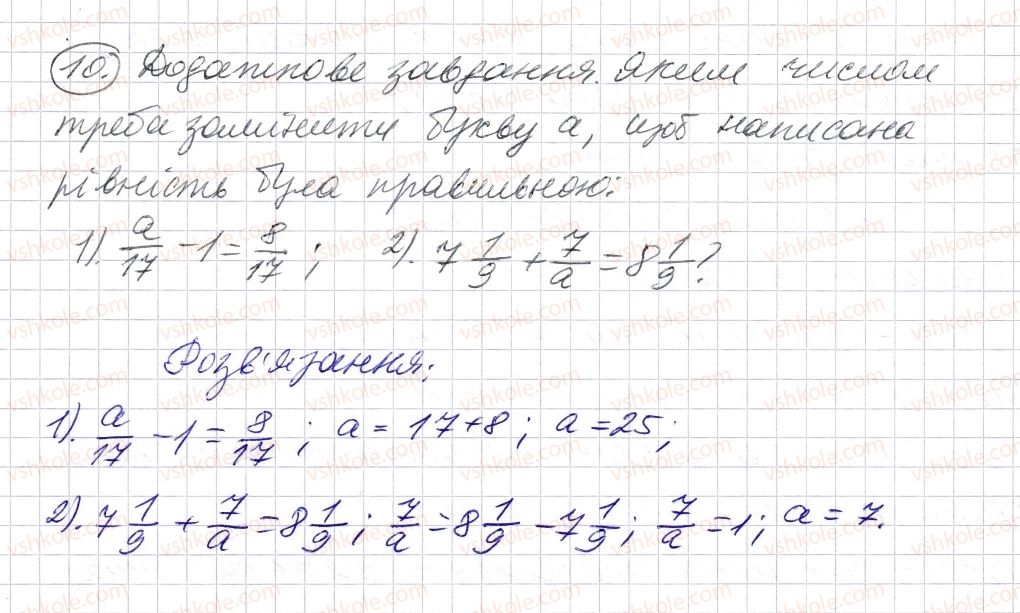 10. Додаткове завдання. Яким числом
треба замінити букву а, щоб написана
рівність була правильною:
1). a/17 - 1 = 8/17 ; 2). 7 1/9 + 7/a = 8 1/9 ?
Розв'язання:
1). a/17 - 1 = 8/17 ; a = 17+8 ; a = 25 ;
2). 7 1/9 + 7/a = 8 1/9 ; 7/a = 8 1/9 - 7 1/9 ; 7/a = 1 ; a = 7.